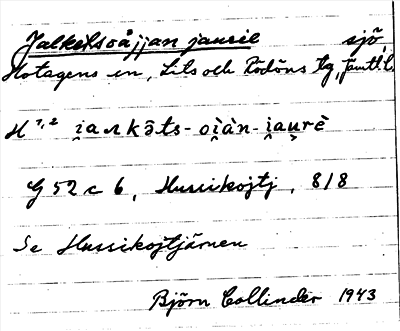 Jalketsoåjjan jaurie sjö
Hotagens sn, Lits och Rödöns tg, Jämtl. l.
H 1,2 i̯aʌkə̑ts-oi̯àn-i̯au̯rè
G 52 c 6, Hussikojtj, 8/8
Se Hussikojtjärnen
Björn Collinder 1943